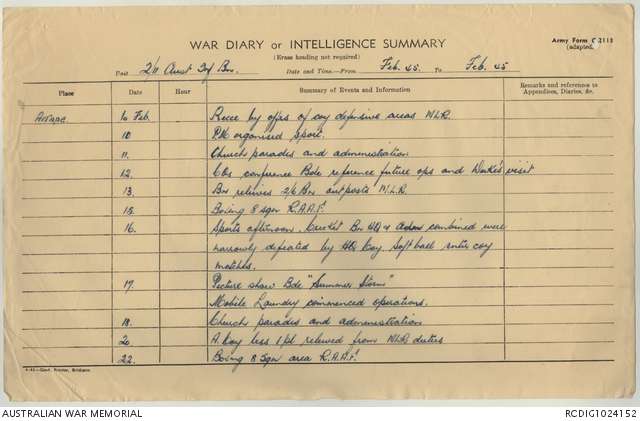 WAR DIARY or INTELLIGENCE SUMMARY
Army Form C 2118
(adapted)
(Erase heading not required)
Unit 2/11 Aust Inf Bn. Date and Time—From Feb. 45 To Feb. 45
Place Date Hour Summary of Events and Information Remarks and references to
Appendices, Diaries, &c.
6 Feb. Recce by offrs of coy defensive areas M.L.R.
10 P.M. organised sport.
11. Church parades and administration
12. COs conference Bde reference future ops and visit
13. Bn relieves 2/6 Bn outposts M.L.R.
15. Boeing 8 sqn R.A.A.F.
16. Sports afternoon. Cricket Bn HQ & Adm combined were
narrowly defeated by HQ Coy. Soft ball inter coy
matches.
17. Picture show Bde "Summer Storm"
Mobile Laundry commenced operations.
18. Church parades and administration
20 A Coy less 1 pl relieved from M.L.R duties
22. Boeing 8 Sqn area R.A.A.F.
Govt. Printer, Brisbane
AUSTRALIAN WAR MEMORIAL RCDIG1024152